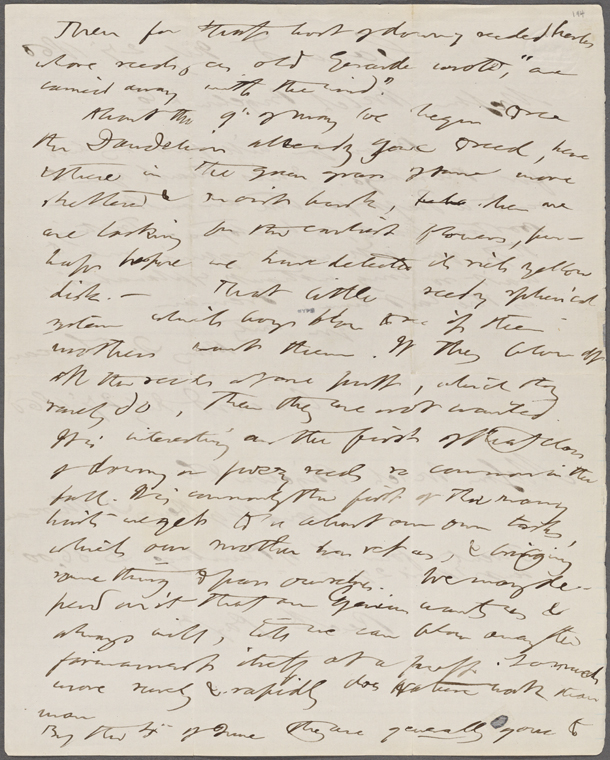 144
Then for that sort of downy seeded herbs
whose seeds, as old Gerarde wrote, "are
carried away with the wind."
About the 9th of May we begin to see
the Dandelion already gone to seed, here
& there in the green grass of some more
sheltered & moist bank, when we
are looking for the earliest flowers, per-
haps before we have detected its rich yellow
disk. — That little seedy spherical
system which boys blow to see if their
mothers want them. If they blow off
all the seeds at one puff, which they
rarely do, then they are not wanted.
It is interesting as the first of that class
of downy or fuzzy seeds so common in the
fall. It is commonly the first of the many
hints we get to be about our own tasks,
which our mother has set us, & bringing
something to pass ourselves. We may de-
pend on it that our genius wants us &
always will, till we can blow away the
firmament itself at a puff. So much
more surely & rapidly does Nature work than
man
By the 4th of June they are generally gone to